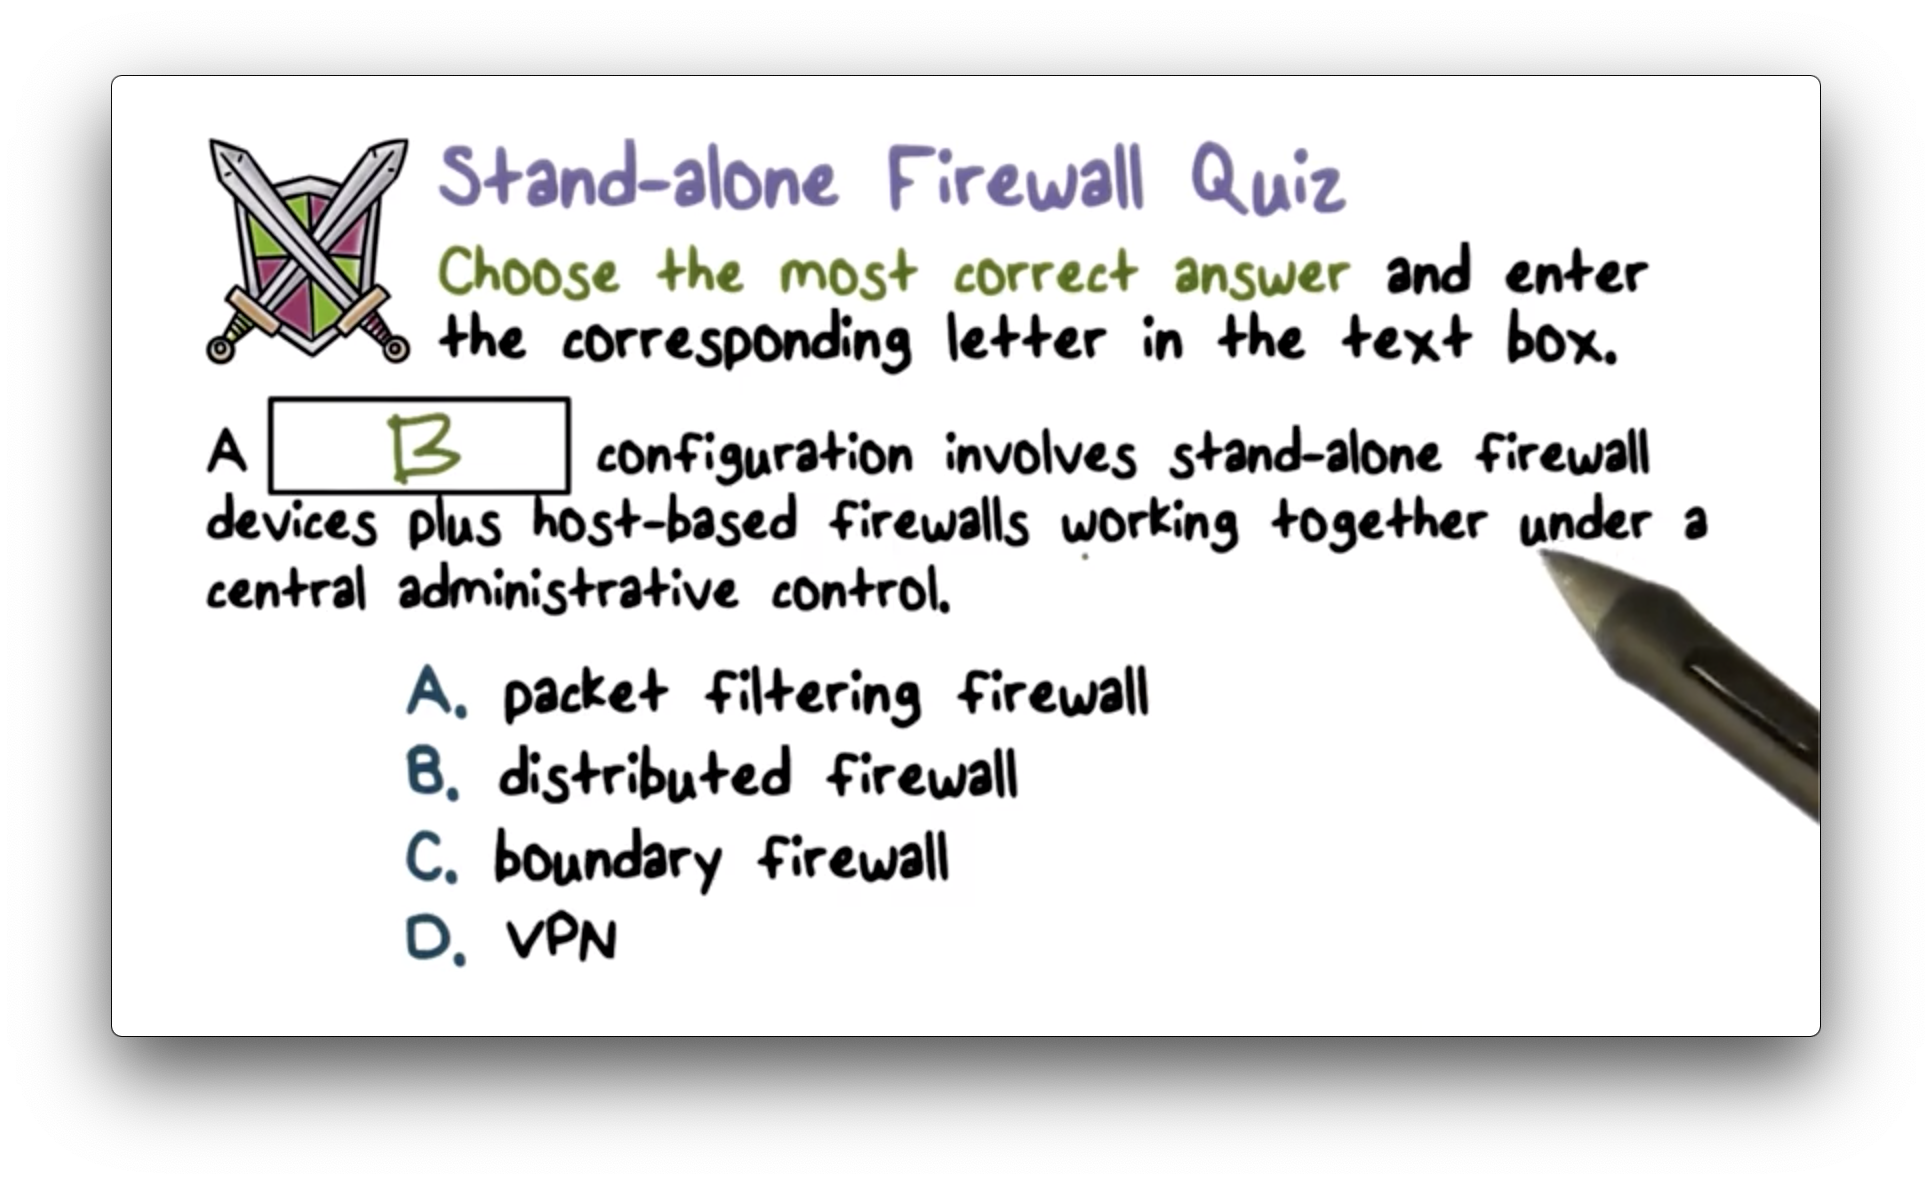 Stand-alone Firewall Quiz
Choose the most correct answer and enter
the corresponding letter in the text box.
A B configuration involves stand-alone firewall
devices plus host-based firewalls working together under a
central administrative control.
A. packet filtering firewall
B. distributed firewall
C. boundary firewall
D. VPN